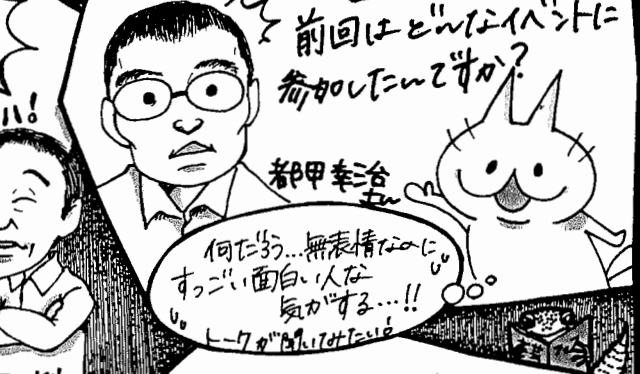 前回はどんなイベントに
参加したんですか?
ハ!
都甲幸治
さん
何だろう…無表情なのに
すっごい面白い人な
気がする…!!
トークが聞いてみたい!